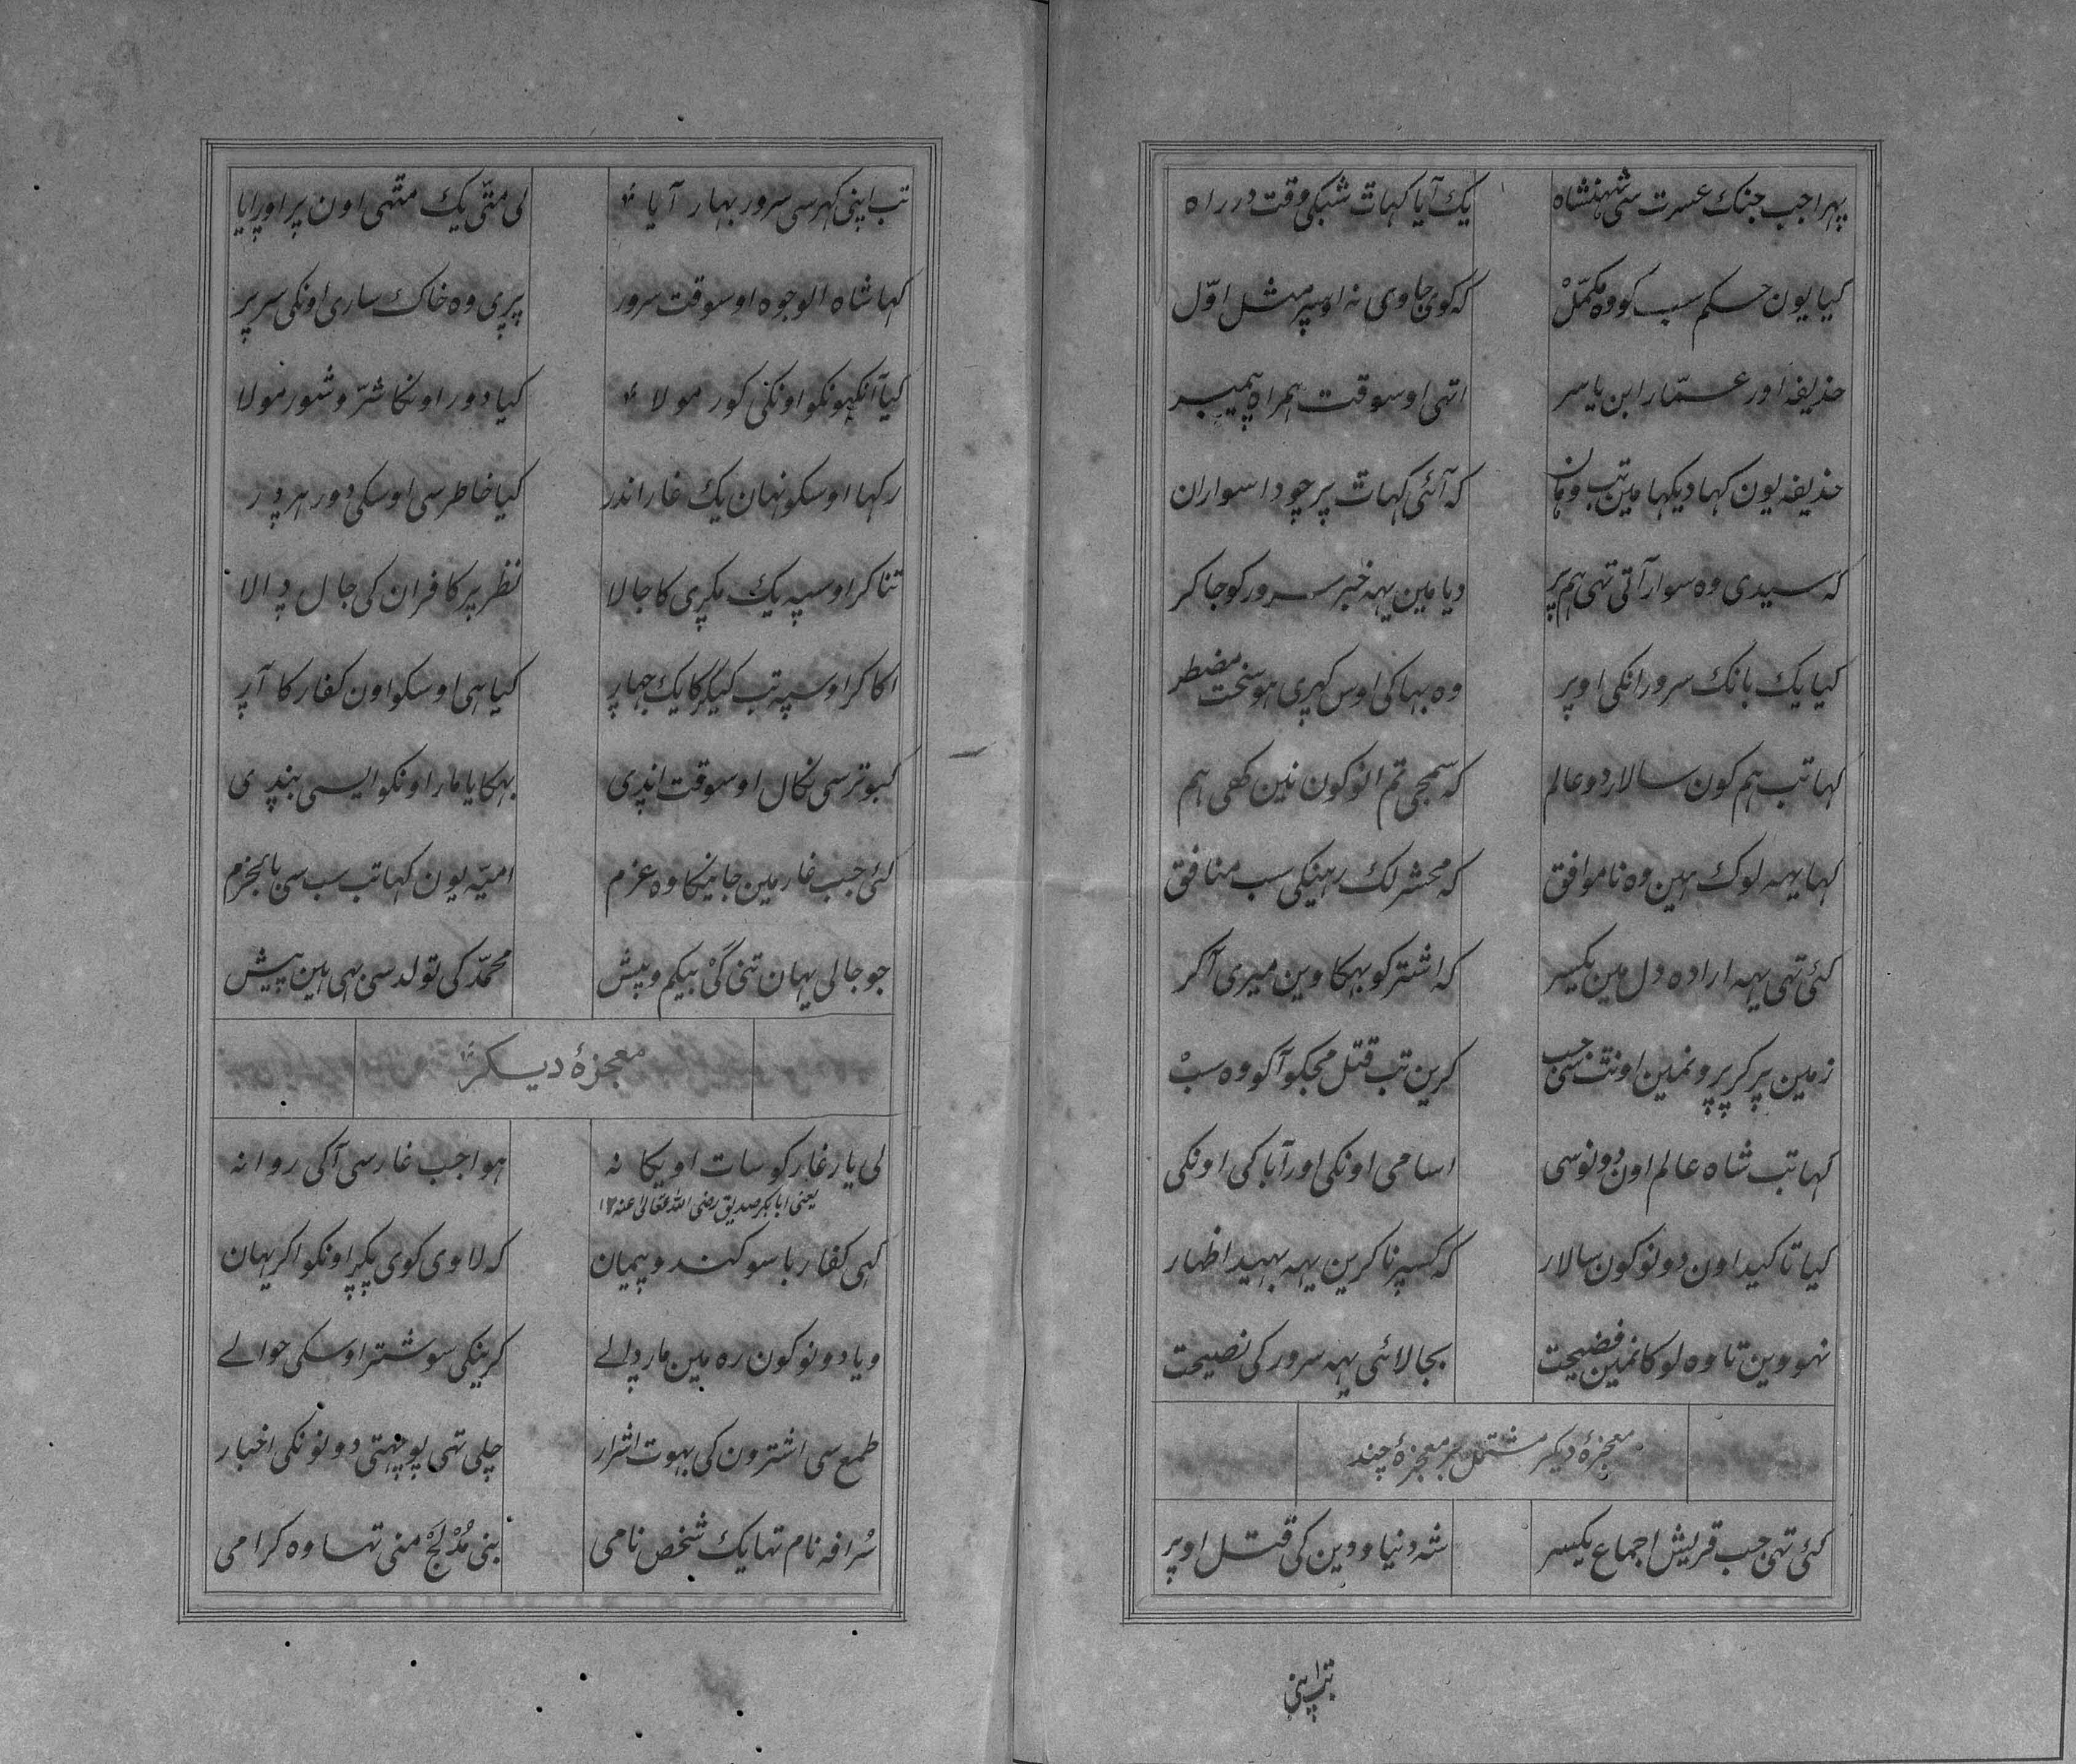 پهرا جب جنك عسرت سی شهنشاه یك آیا کهاٹ شبکی وقت در راه
کیا یون حکم سب کو وه مکمّل که کوی جاوی نه اوسپر مثل اوّل
حذیفه اور عمّار ابن یاسر اتهی اوسوقت همراه پیمبر
حذیفه یون کها دیکها مین تب وهان که آئی کهاٹ پر چودا سواران
که سیدی وه سوار آتی تهی هم پر دیا مین یهه خبر سرور کو جا کر
کیا یك بانك سرور انکی اوپر وه بهاکی اوس کهری هو سخت مضطر
کها تب هم کون سالار دو عالم که سمجی تم انو کون نین کهی هم
کها یهه لوك هین وه ناموافق که محشر لك رهینکی سب منافق
کئی تهی یهه اراده دل مین یکسر که اشتر کو بهکاوین میری آکر
زمین پر کر پرونمین اونٹ سی جب کرین تب قتل مجکو آکو وه سب
کها تب شاه عالم اون دونوسی اسامی اونکی اور آبا کی اونکی
کیا تاکید اون دونو کون سالار که کسپر نا کرین یهه بهید اظهار
نهووین تا وه لوکانمین فضیحت بجا لائی یهه سرور کی نصیحت
معجزۀ دیکر مشتمل بر معجزۀ چند
کئی تهی جب قریش اجماع یکسر شه دنیا و دین کی قتل اوپر
تب اپنی
تب اپنی کهر سی سرور بهار آیا لی مٹی یك مٹهی اون پر اورایا
کها شاه الوجوه اوسوقت سرور پری وه خاك ساری اونکی سر پر
کیا آنکهونکو اونکی کور مولا کیا دور اونکا شرّ و شور مولا
رکها اوسکو نهان یك غار اندر کیا خاطر سی اوسکی دور هر ڈر
تنا کر اوسپه یك مکری کا جالا نظر پر کافران کی جال ڈالا
اکا کر اوسپه تب کیکر کا یك جهاڑ کیا هی اوسکو اون کفار کا آڑ
کبوتر سی نکال اوسوقت انڈی بهکایا مار اونکو ایسی بنڈی
کئی جب غار مین جانیکا وه عزم امیّه یون کها تب سب سی بالجزم
جو جالی یهان تنی کی بیکم و بیش محمّد کی تولد سی بهی هین پیش
معجزۀ دیکر
لی یار غار کو سات او یکانه هوا جب غار سی آکی روانه
یعنی ابابکر صدیق رضی الله تعالی عنه ۱۲
کهی کفار با سوکند و پیمان که لاوی کوی پکڑ اونکو اکر یهان
و یا دونو کون ره مین مار ڈالے کرینکی سو شتر اوسکی حوالے
طمع سی اشترون کی بهوت اشرار چلی تهی پوچهتی دونونکی اخبار
سُراقه نام تها یك شخص نامی بنی مُدْلَجْ منی تها وه کرامی